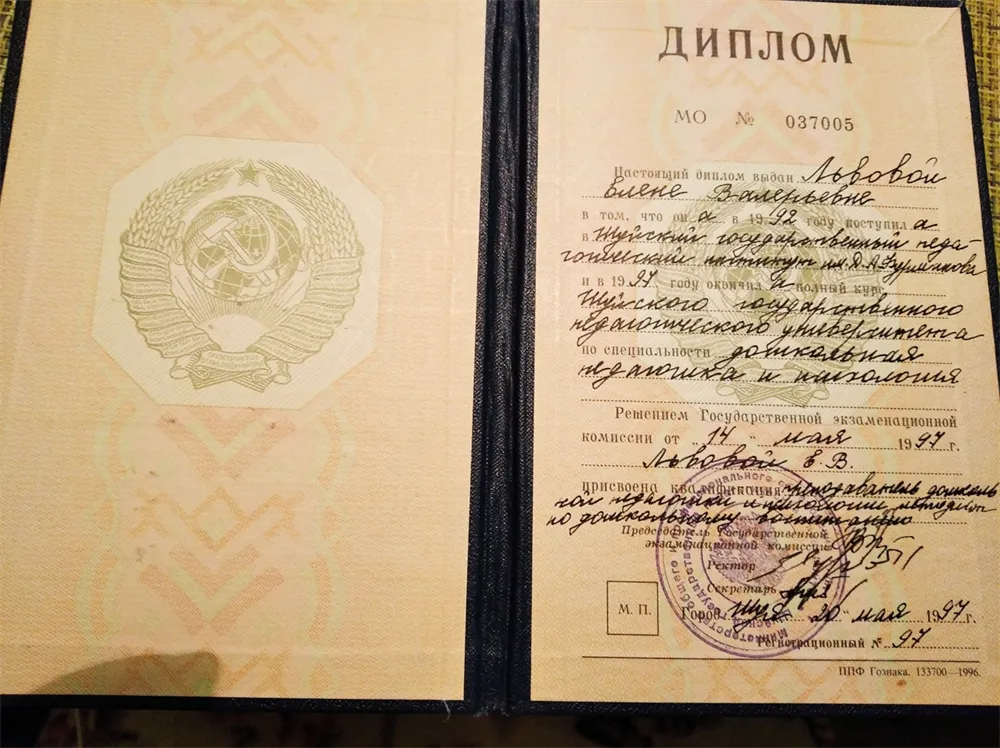 ДИПЛОМ
МО № 037005
Настоящий диплом выдан Львовой
Елене Валерьевне
в том, что он а в 1992 году поступил а
в Шуйский государственный педа-
гогический институт им. Д.А. Фурманова
и в 1997 году окончил а полный курс
Шуйского государственного
педагогического университета
по специальности дошкольная
педагогика и психология
Решением Государственной экзаменационной
комиссии от "14" мая 1997 г.
Львовой Е. В.
присвоена квалификация преподаватель дошколь
ной педагогики и психологии, методист
по дошкольному воспитанию
Председатель Государственной
экзаменационной комиссии
Ректор
Секретарь
М. П.
Город Шуя "20" мая 1997 г.
Регистрационный № 97
ППФ Гознака. 133700—1996.